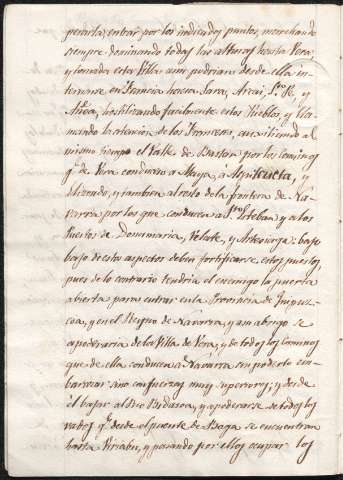 penarla, entrar por los indicados puntos, marchando
siempre dominando todas las alturas hasta Vera,
y tomada esta Villa aun podrian desde ella in-
ternarse en Francia hacia Sara, Azcai, Sn. Pe, y
Añoa, hostilizando facilmente estos Pueblos, y lla-
mando la atencion de los Franceses, auxiliando al
mismo tiempo el Valle de Bastan por los caminos
qe. de Vera conducen a Maya, a Azpilcueta, y
Elizondo, y tambien al resto de la frontera de Na-
varra por los que conducen a Sn. Esteban y a los
Puertos de Donamaria, Velate, y Artesiaga: bajo
bajo de estos aspectos deben fortificarse estos puestos,
pues de lo contrario tendria el enemigo la puerta
abierta para entrar en la Provincia de Guipuz-
coa, y en el Reyno de Navarra, y a su abrigo se
apoderaria de la Villa de Vera, y de todos los Caminos
que de ella conducen a Navarra sin poderlo em-
barazar sino con fuerzas muy superiores; y desde
él bajar al Rio Bidasoa, y apoderarse de todos los
vados qe. desde el puente de Boga se encuentran
hasta Biriatu, y pasando por ellos ocupar los